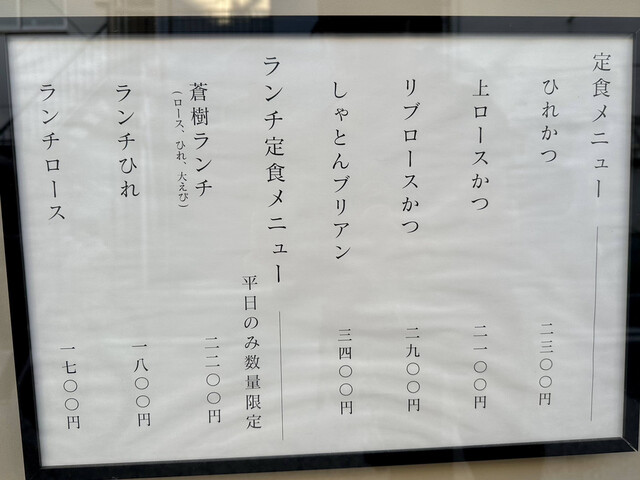 定食メニュー
ひれかつ 二三〇〇円
上ロースかつ 二一〇〇円
リブロースかつ 二九〇〇円
しゃとんブリアン 三四〇〇円
ランチ定食メニュー
平日のみ数量限定
蒼樹ランチ 二二〇〇円
(ロース、ひれ、大えび)
ランチひれ 一八〇〇円
ランチロース 一七〇〇円